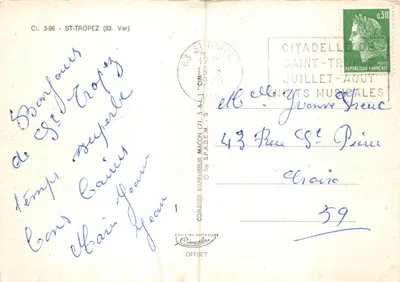 Ci. 3-56 - ST-TROPEZ (83. Var)
Bonjour
de St Tropez
temps superbe
bons baisers
Marie Jeanne
Jean
COMBIER IMPRIMEUR MACON (71. S.-&-L.) "CIM"
© by S.P.A.D.E.M.
OFFSET
83 ST TROPEZ
CITADELLE DE
SAINT-TROPEZ
JUILLET-AOUT
NUITS MUSICALES
0,30
REPUBLIQUE FRANCAISE
Yvonne
43 Rue St Pierre
59